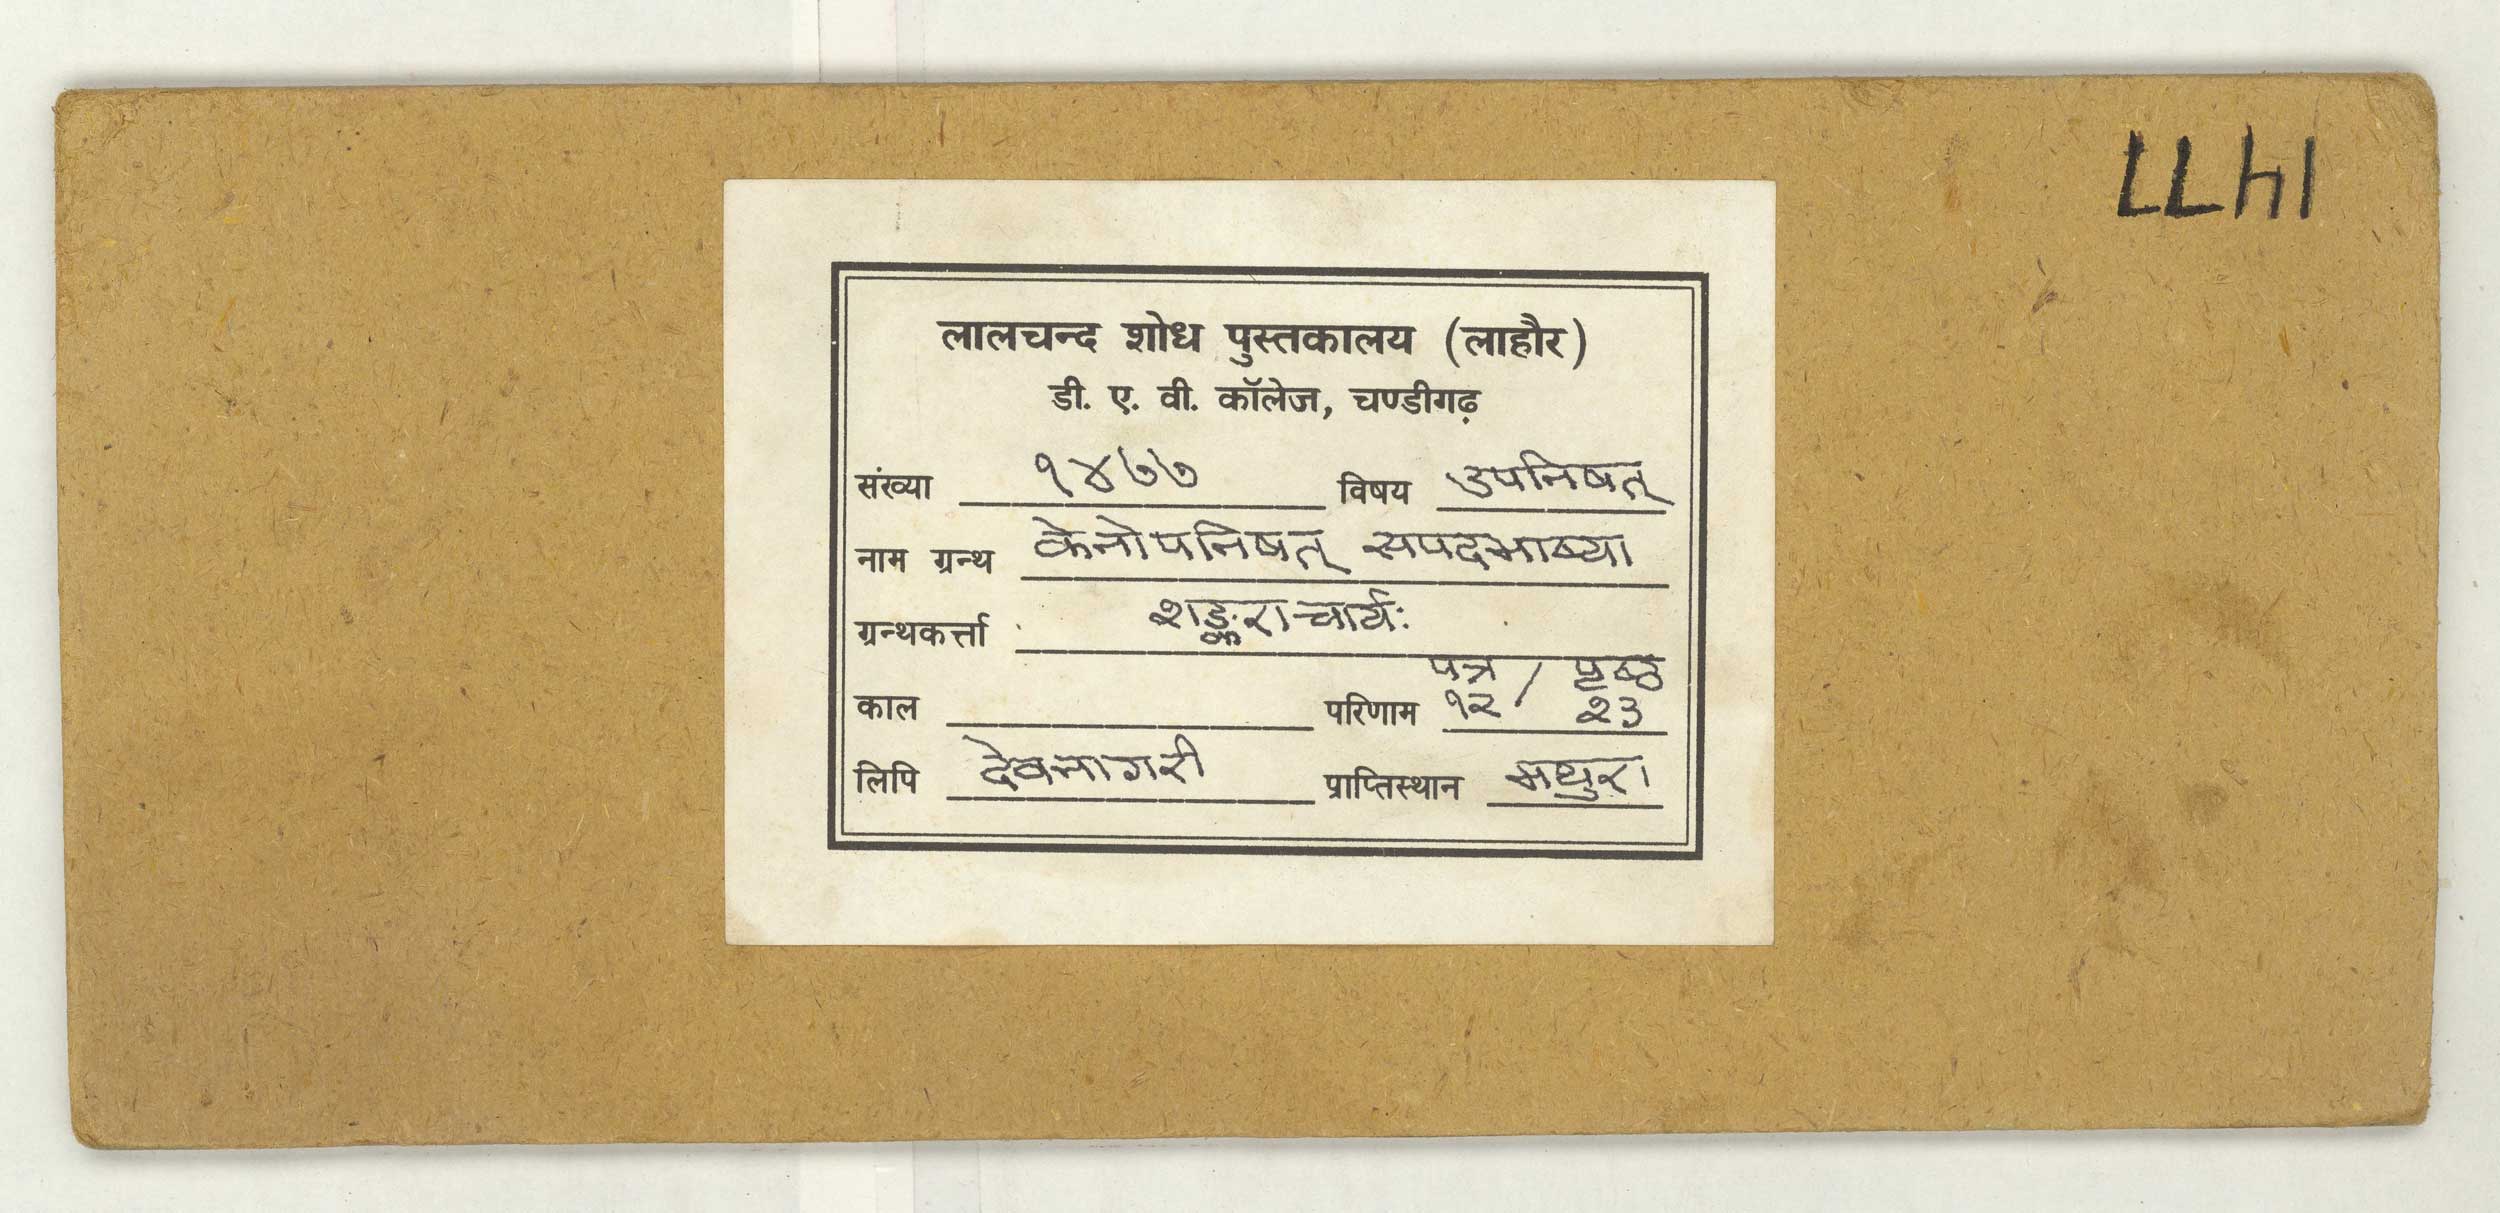 1477
लालचन्द शोध पुस्तकालय (लाहौर)
डी. ए. वी. कॉलेज, चण्डीगढ़
संख्या १४७७ विषय उपनिषत्
नाम ग्रन्थ केनोपनिषत् सपदभाष्या
ग्रन्थकर्त्ता शङ्कराचार्यः
पत्र / पृष्ठ
काल परिणाम १२ / २३
लिपि देवनागरी प्राप्तिस्थान मथुरा